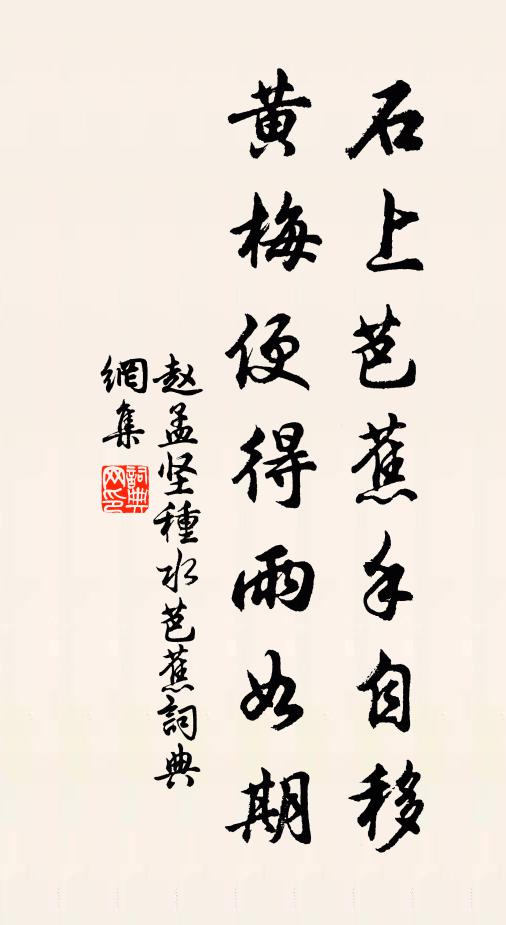 石上芭蕉手自移
黄梅便得雨如期
赵孟坚種水芭蕉詞典
網集
詞典網印